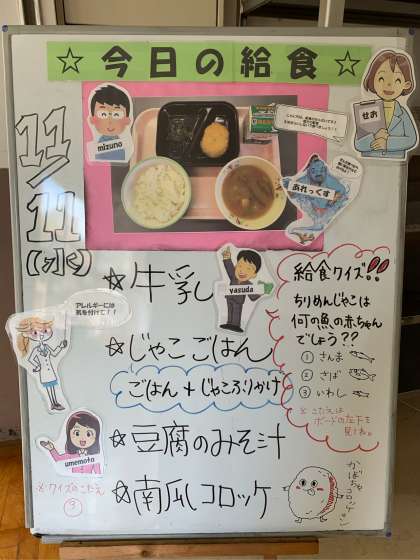 ☆今日の給食☆
11/11
(水)
mizuno
せお
あれっくす
yasuda
アレルギーには
気を付けて!!
umemoto
☆牛乳
☆じゃこごはん
ごはん+じゃこふりかけ
☆豆腐のみそ汁
☆南瓜コロッケ
給食クイズ!!
ちりめんじゃこは
何の魚の赤ちゃん
でしょう??
① さんま
② さば
③ いわし
※こたえは
ボードの左下を
見てね。
かぼちゃコロッケ
※クイズのこたえ
③